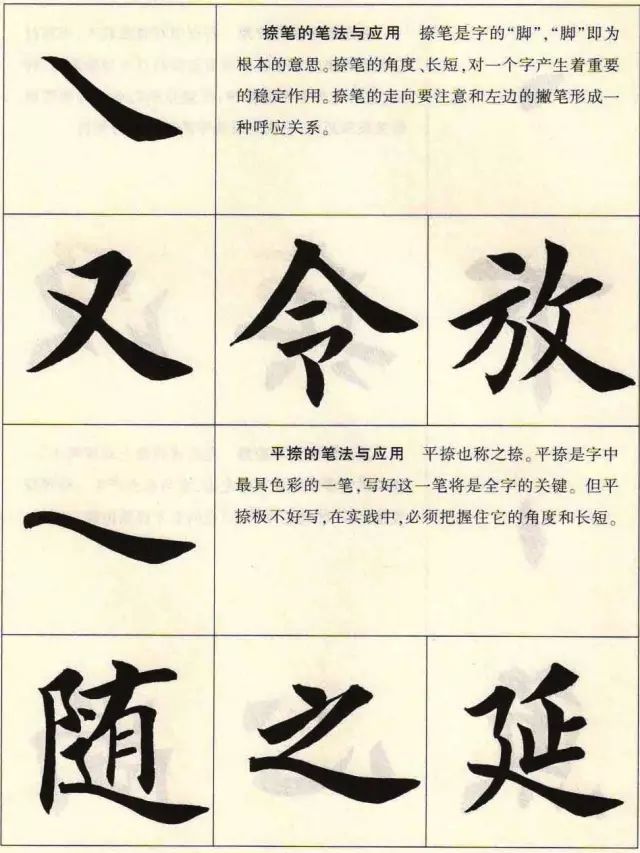 捺笔的笔法与应用　捺笔是字的“脚”，“脚”即为
根本的意思。捺笔的角度、长短，对一个字产生着重要
的稳定作用。捺笔的走向要注意和左边的撇笔形成一
种呼应关系。
又 令 放
平捺的笔法与应用　平捺也称之捺。平捺是字中
最具色彩的一笔，写好这一笔将是全字的关键。但平
捺极不好写，在实践中，必须把握住它的角度和长短。
随 之 延